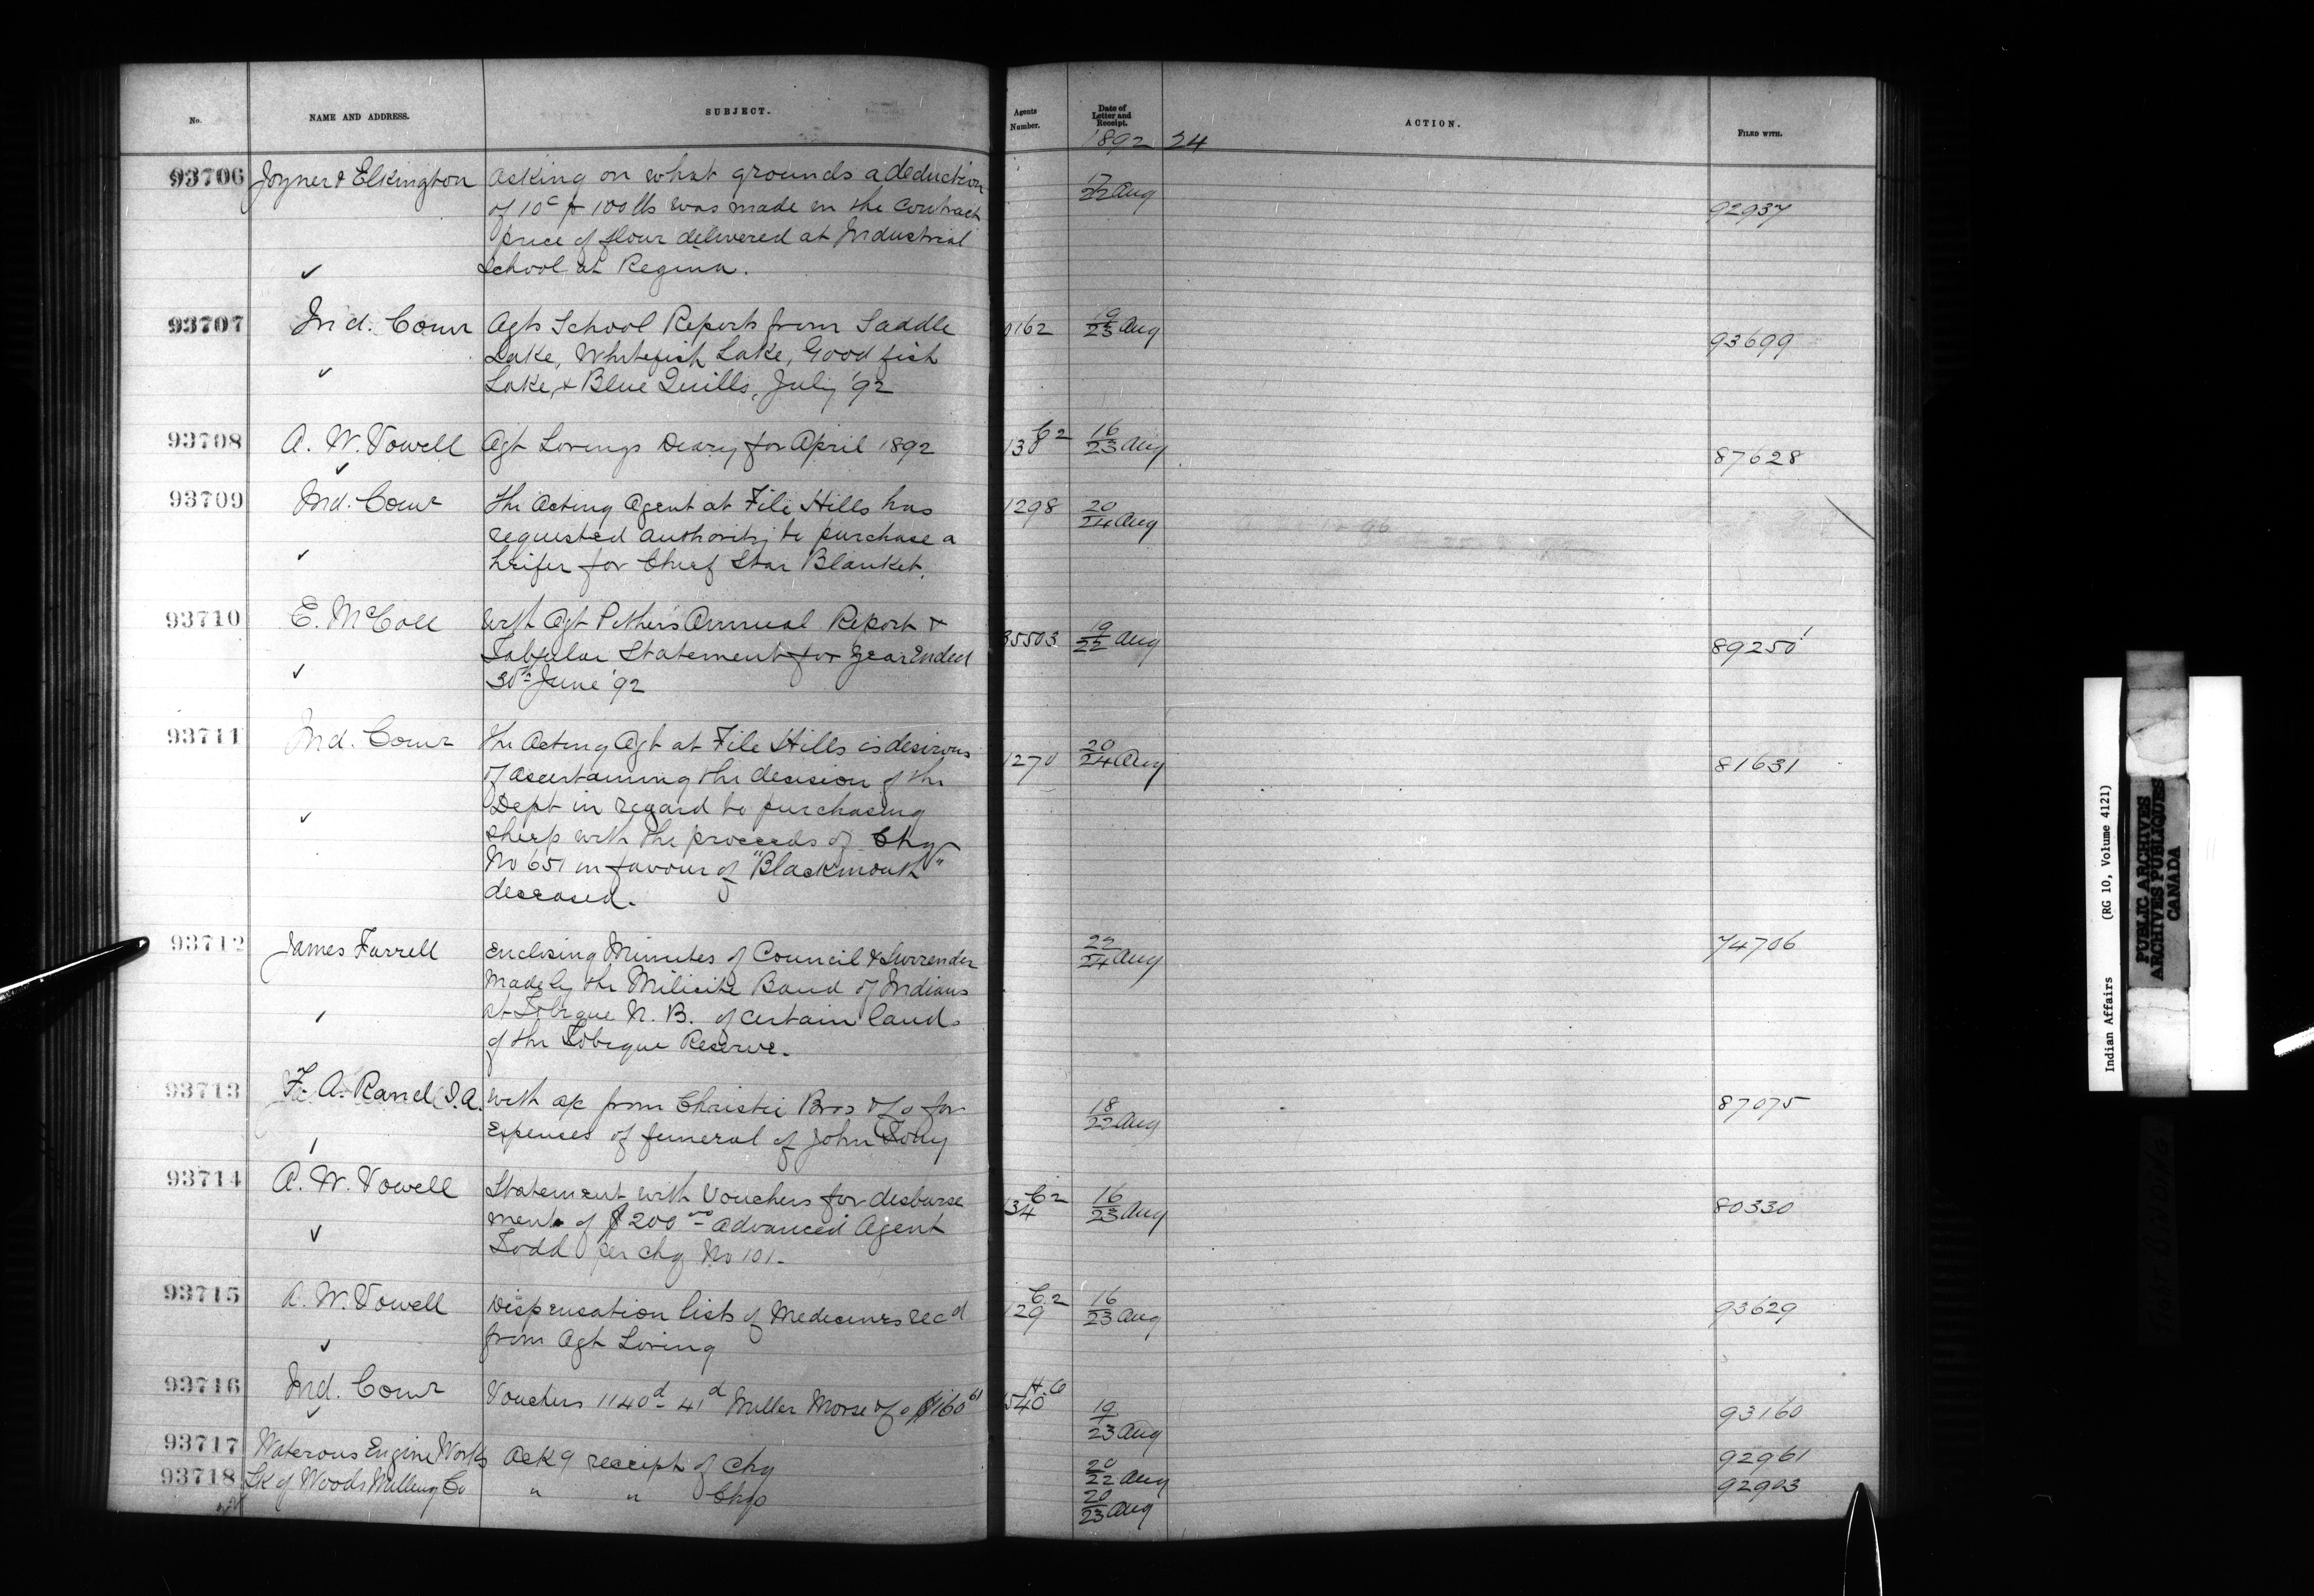 No.
NAME AND ADDRESS.
SUBJECT.
Agents Number.
Date of Letter and Receipt.
ACTION.
FILED WITH.
1892 24
93706 Joyner & Elkington Asking on what grounds a deduction 17/22 Aug 92937
of 10c p 100 lbs was made on the contract
price of flour delivered at Industrial
✓ School at Regina.
93707 Ind. Comr Agts School Reports from Saddle 0162 19/23 Aug 93699
Lake, Whitefish Lake, Good fish
✓ Lake, & Blue Quills, July '92
93708 A. W. Vowell Agt Lorings Diary for April 1892 C2 130 16/23 Aug 87628
✓
93709 Ind. Comr The Acting Agent at File Hills has 1298 20/24 Aug
requested authority to purchase a
✓ heifer for Chief Star Blanket.
93710 E. McColl With Agt Pither's Annual Report & 35503 19/22 Aug 89250
Tabular Statement for year Ended
✓ 30th June '92
93711 Ind. Comr The Acting Agt at File Hills is desirous 1270 20/24 Aug 81631
of ascertaining the decision of the
Dept in regard to purchasing
✓ sheep with the proceeds of Chq
No 651 in favour of "Blackmouth"
deceased.
93712 James Farrell Enclosing Minutes of Council & Surrender 22/24 Aug 74706
made by the Milicite Band of Indians
at Tobique N. B. of certain lands
of the Tobique Reserve.
93713 F. A. Rand I.A. With a/c from Christie Bros & Co for 18/22 Aug 87075
Expenses of funeral of John Tony
93714 A. W. Vowell Statement with Vouchers for disburse C2 134 16/23 Aug 80330
ment of $200 00 advanced Agent
✓ Todd per chq No 101.
93715 A. W. Vowell Dispensation lists of Medicines recd C2 129 16/23 Aug 93629
✓ from Agt Loring
93716 Ind. Comr Vouchers 1140d - 41d Miller Morse & Co $160 61 H.O 540 19/23 Aug 93160
✓
93717 Waterous Engine Works Ackg receipt of chq 20/22 Aug 92961
93718 Lk of Woods Milling Co " " Chqs 20/23 Aug 92903
Indian Affairs (RG 10, Volume 4121)
PUBLIC ARCHIVES
ARCHIVES PUBLIQUES
CANADA